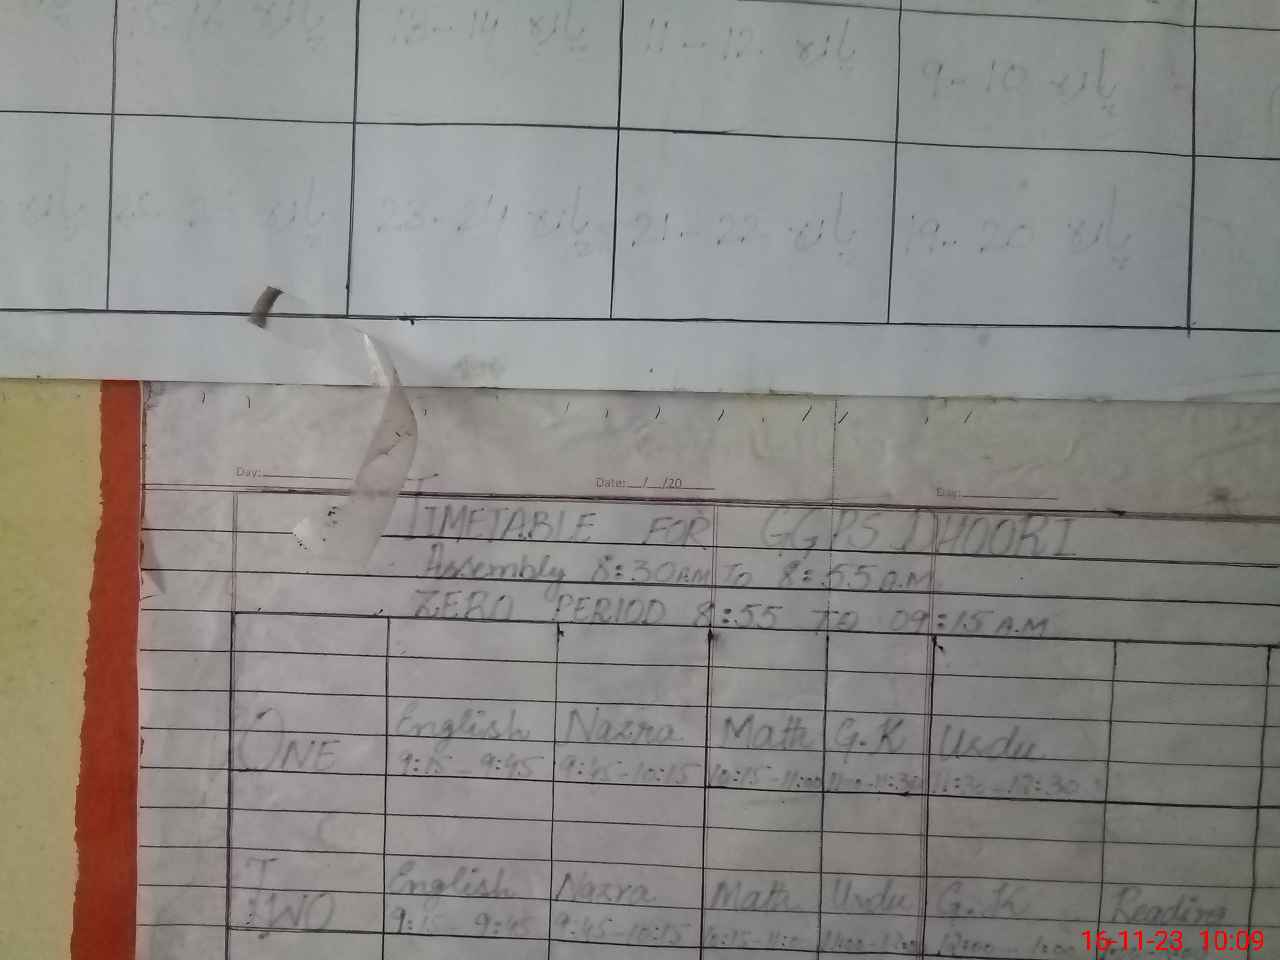 پارہ 13-14 پارہ 11-12 پارہ 9-10
پارہ پارہ 23-24 پارہ 21-22 پارہ 19-20
Day: Date: __/__/20 Day:
TIMETABLE FOR GGPS DHOORI
Assembly 8:30 A.M To 8:55 A.M
ZERO PERIOD 8:55 TO 09:15 A.M
ONE English Nazra Math G.K Urdu
9:15 - 9:45 9:45-10:15 10:15-11:00 11:00-11:30 11:30-12:30
TWO English Nazra Math Urdu G.K Reading
9:15 - 9:45 9:45-10:15
16-11-23 10:09